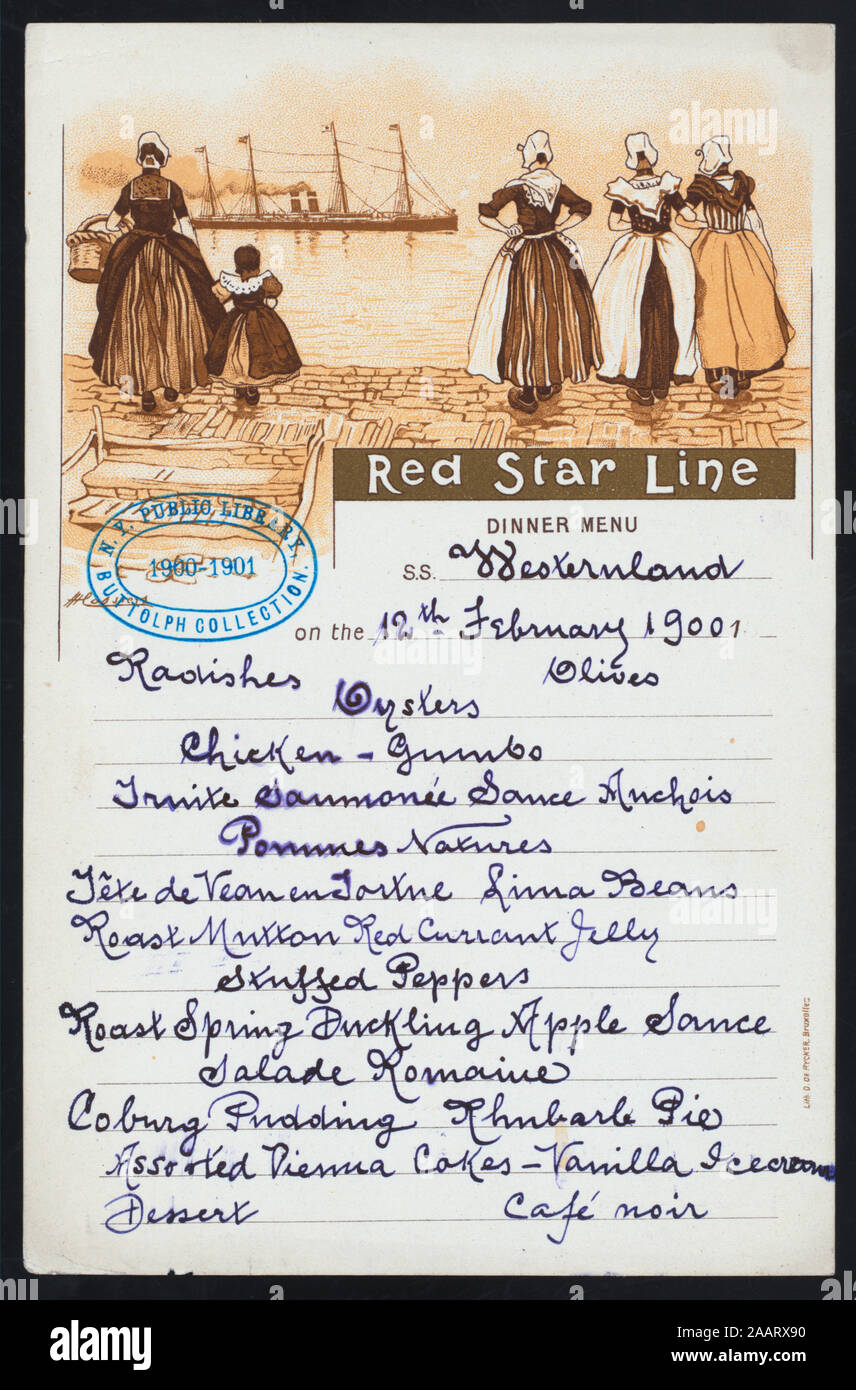 Red Star Line
DINNER MENU
S.S. Westernland
on the 12th February 19001
N.Y. PUBLIC LIBRARY.
1900-1901
BUTTOLPH COLLECTION.
Radishes Olives
Oysters
Chicken - Gumbo
Truite Saumonée Sauce Anchois
Pommes Natures
Tête de Veau en Tortue Lima Beans
Roast Mutton Red Currant Jelly
Stuffed Peppers
Roast Spring Duckling Apple Sauce
Salade Romaine
Coburg Pudding Rhubarb Pie
Assorted Vienna Cakes - Vanilla Icecream
Dessert Café noir
Lith. O. DE RYCKER, Bruxelles
alamy
Image ID: 2AARX90
www.alamy.com